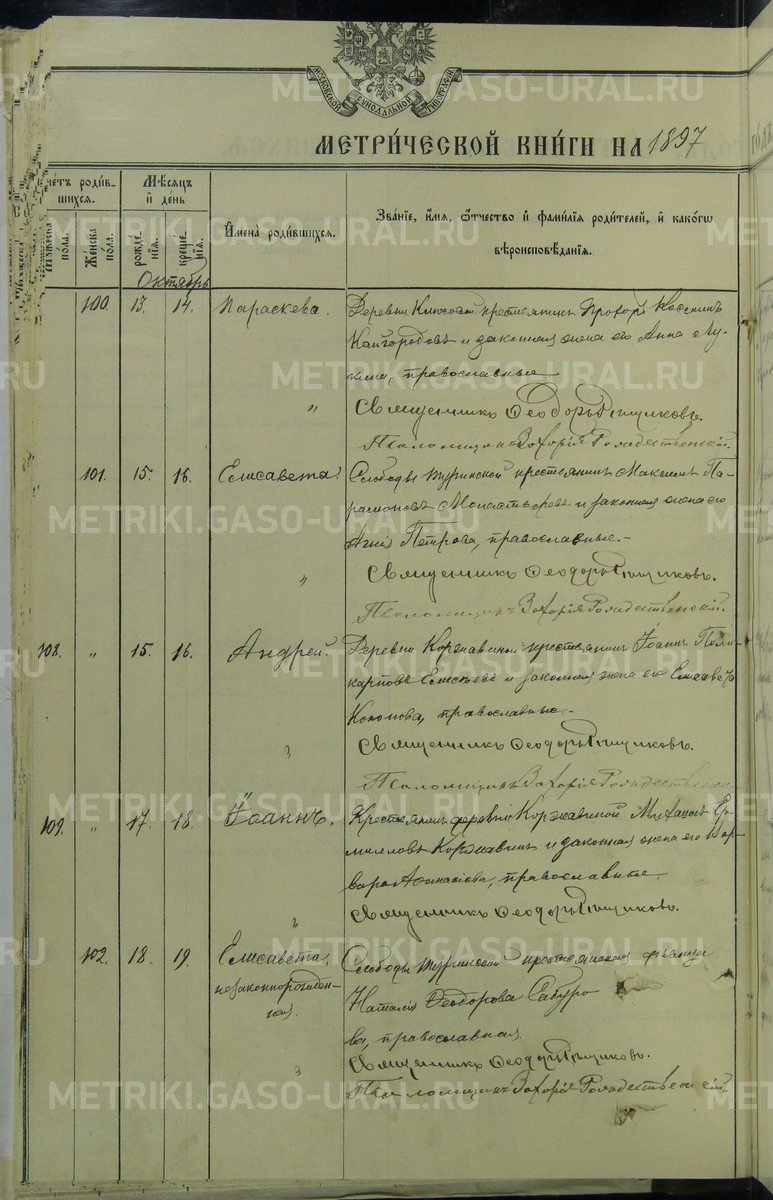 МОСКОВСКОЙ СѴНОДАЛЬНОЙ ТИПОГРАФІИ
МЕТРИ́ЧЕСКОЙ КНИ́ГИ НА 1897
Счетъ роди́в-
шихся.
Му́жеска
по́ла.
Же́нска
по́ла.
Мѣ́сяцъ
и҆ де́нь
рожде́-
нїя.
креще́-
нїя.
И҆мена̀ роди́вшихся.
Зва́нїе, и҆́мя, ѻ҆́тчество и҆ фами́лїя роди́телей, и҆ како́гѡ
вѣроисповѣ́данїя.
Октябрь
100. 13. 14. Параскева. Деревни Ключевой крестьянинъ Прохоръ Космин
Кайгородовъ и законная жена его Анна Лу-
кина, православные
Священникъ Ѳеодоръ
Псаломщикъ Захарія Рождественскій.
101. 15. 16. Елисавета. Слободы Туринской крестьянинъ Максимъ Па-
рамоновъ и законная жена его
Агнія Петрова, православные.-
Священникъ Ѳеодоръ
Псаломщикъ Захарія Рождественскій.
108. " 15. 16. Андрей. Деревни Коржавиной крестьянинъ Іоаннъ Поли-
карповъ Елисѣевъ и законная жена его Елисавета
Кононова, православные.-
Священникъ Ѳеодоръ
Псаломщикъ Захарія Рождественскій
109. " 17. 18. Іоаннъ. Крестьянинъ деревни Коржавиной Михаилъ Ер-
милловъ Коржавинъ и законная жена его Вар-
вара Аѳанасіева, православные.
Священникъ Ѳеодоръ
102. 18. 19. Елисавета, Слободы Туринской крестьянская дѣвица
незаконнорожден-
ная.
Наталія Ѳеодорова Сабуро
ва, православная
Священникъ Ѳеодоръ
Псаломщикъ Захарія Рождественскій
METRIKI.GASO-URAL.RU